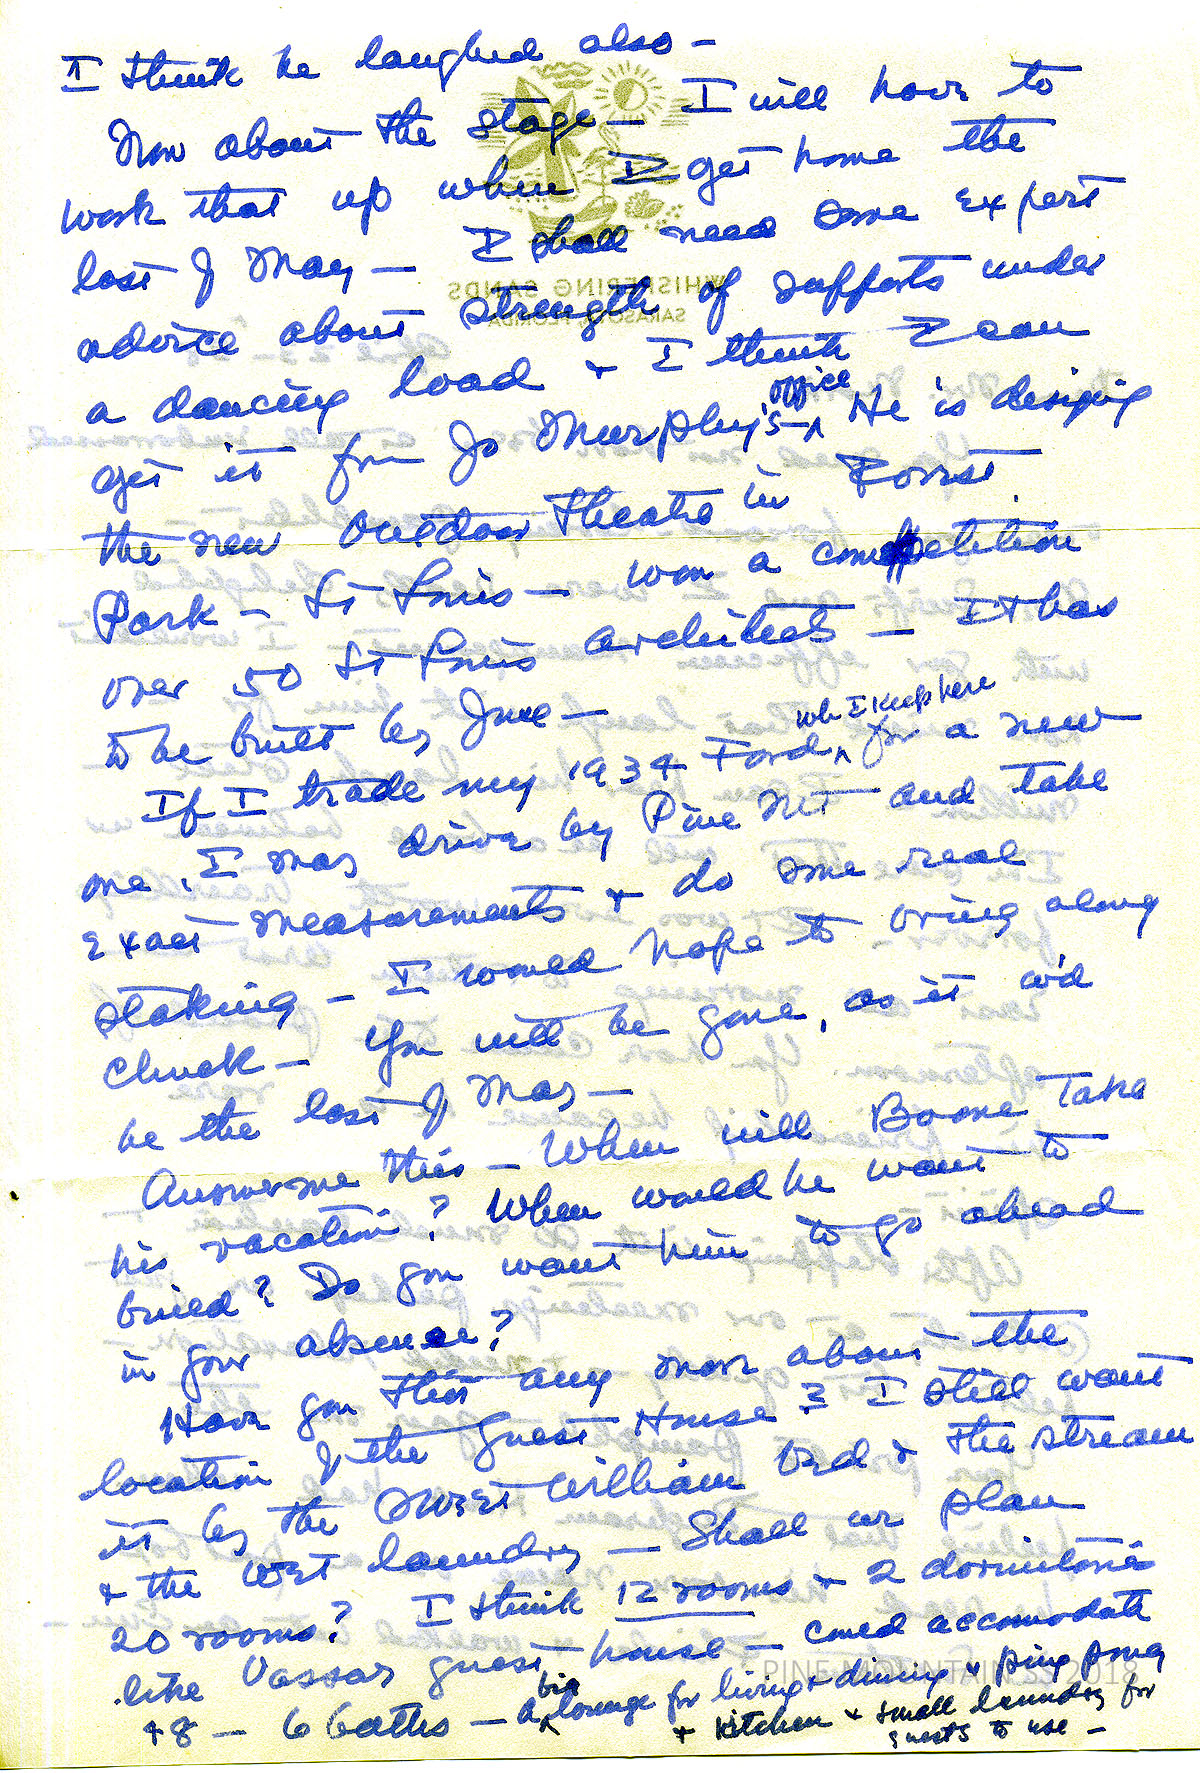 I think he laughed also —
Now about the stage — I will have to
work that up when I get home the
last of May — I shall need some expert
advice about strength of supports under
a dancing load & I think I can
get it from Jo Murphy's office He is desiging
the new Outdoor Theatre in Forrest
Park — St Louis — won a competition
over 50 St Louis architects — It has
to be built by June —
If I trade my 1934 Ford, wh I keep here for a new
one, I may drive by Pine Mt and take
exact measurements & do some real
staking — I would hope to bring along
Chuck — You will be gone, as it w'd
be the last of May —
Answer me this — When will Boone take
his vacation? When would he want to
build? Do you want him to go ahead
in your absence?
Have you thot any more about the
location of the Guest House? I still want
it by the Sweet William bed & the stream
& the wet laundry — Shall we plan
20 rooms? I think 12 rooms & 2 dormitories
like Vassar guest-house — could accomodate
48 — 6 baths — A big lounge for living & dining & ping pong
& kitchen & small laundry for
guests to use —
WHISPERING SANDS
SARASOTA, FLORIDA
PINE MOUNTAIN SS 2018